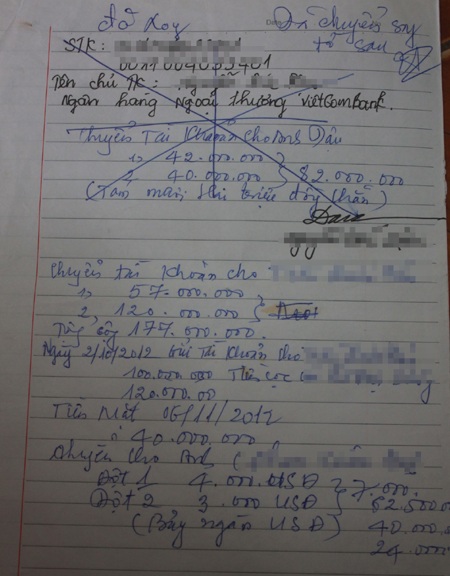 Đã chuyển sang
tờ sau
STK:
Tên chủ TK:
Ngân hàng Ngoại thương VietComBank.
Chuyển Tài Khoản cho Anh Dậu
1, 42.000.000
2 40.000.000 } 82.000.000
(Tám mươi hai triệu đồng chẵn)
Chuyển tài Khoản cho
1, 57.000.000
2, 120.000.000
Tổng cộng 177.000.000.
Ngày 2/10/2012 Gửi Tài Khoản cho
100.000.000 Tiền cọc
120.000.00
Tiền Mặt 06/11/2012
40.000.000
Chuyển cho Anh (
Đợt 1 4.000 USD } 7.000.
Đợt 2 3.000 USD 62.500.0
(Bảy ngàn USD) 40.000.0
24.000